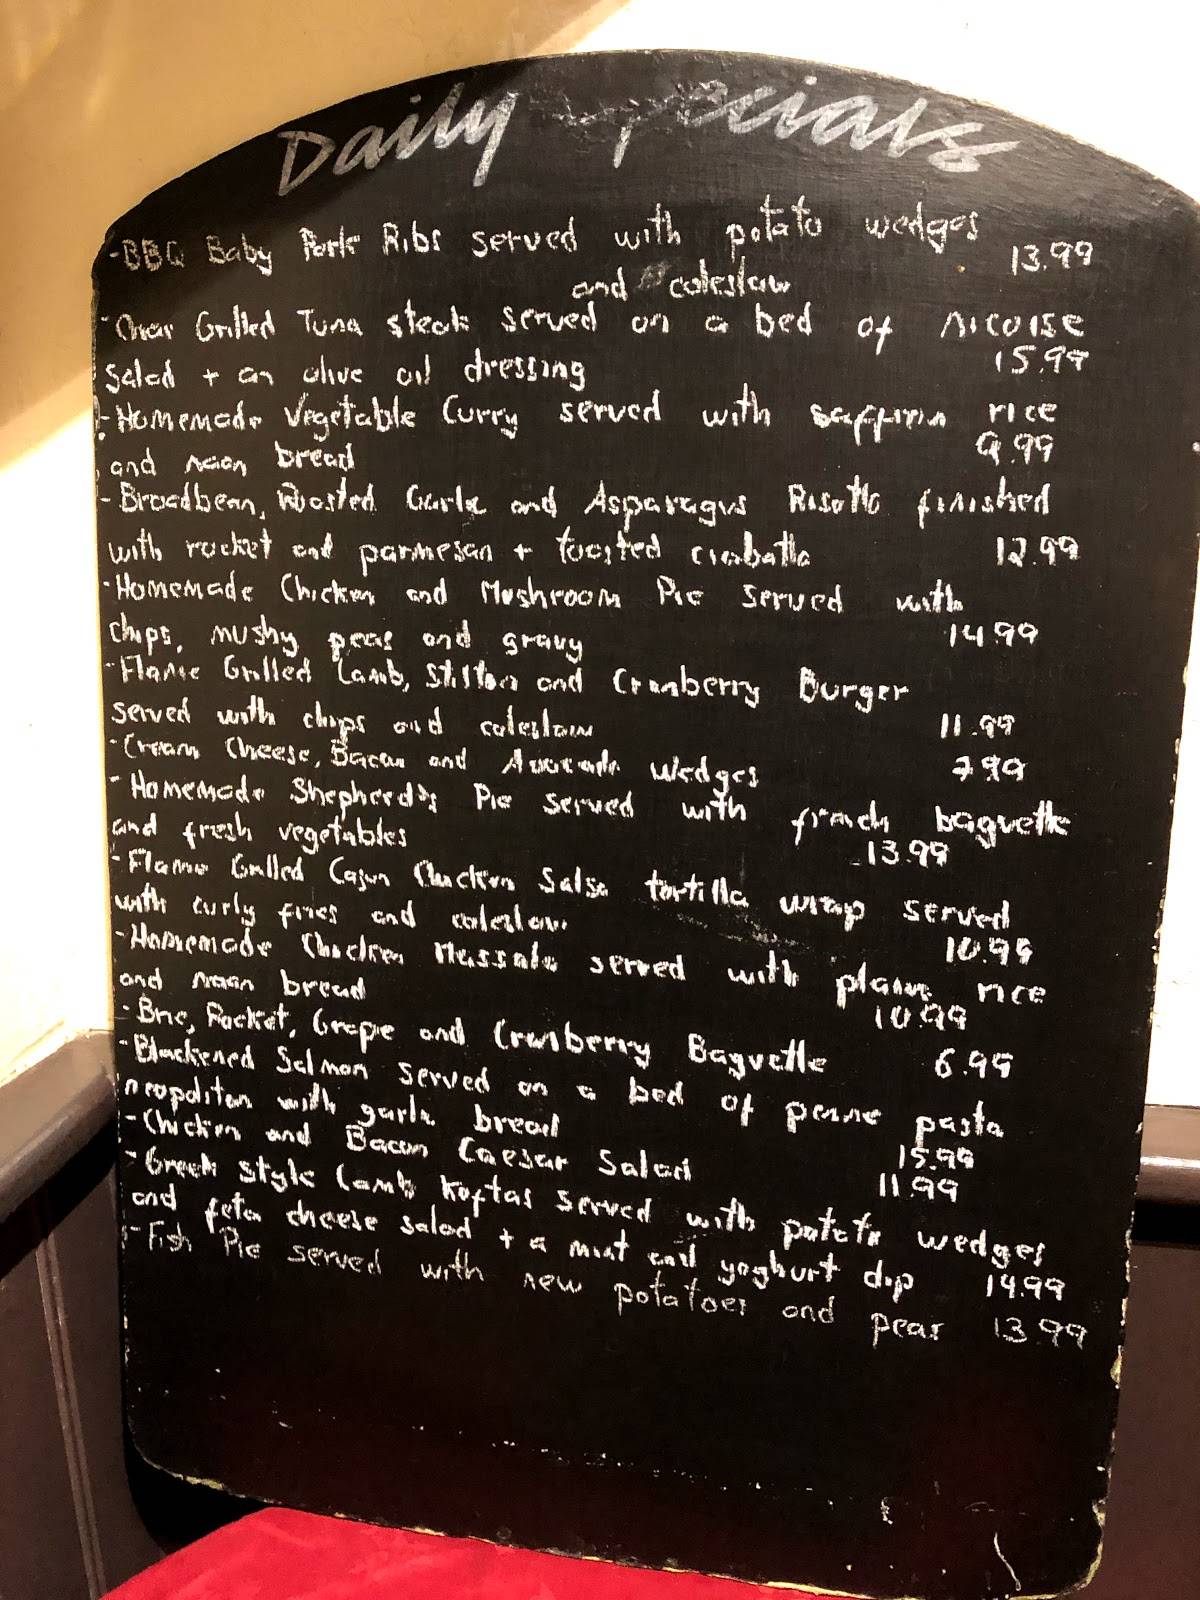 Daily Specials
-BBQ Baby Pork Ribs served with potato wedges
and coleslaw 13.99
- Grilled Tuna steak served on a bed of Nicoise
salad + an olive oil dressing 15.99
-Homemade Vegetable Curry served with rice
and naan bread 9.99
-Broadbean, Roasted Garlic and Asparagus Risotto finished
with rocket and parmesan + toasted 12.99
-Homemade Chicken and Mushroom Pie served with
chips, mushy peas and gravy 14.99
-Flame Grilled Lamb, Stilton and Cranberry Burger
served with chips and coleslaw 11.99
-Cream Cheese, Bacon and Avocado Wedges 7.99
-Homemade Shepherd's Pie served with french baguette
and fresh vegetables 13.99
-Flame Grilled Cajun Chicken Salsa tortilla wrap served
with curly fries and coleslaw 10.99
-Homemade Chicken Massala served with rice
and naan bread 10.99
-Brie, Rocket, Grape and Cranberry Baguette 6.99
-Blackened Salmon served on a bed of penne pasta
neopolitan with garlic bread 15.99
-Chicken and Bacon Caesar Salad 11.99
-Greek style lamb koftas served with potato wedges
and feta cheese salad + a mint and yoghurt dip 14.99
-Fish Pie served with new potatoes and peas 13.99